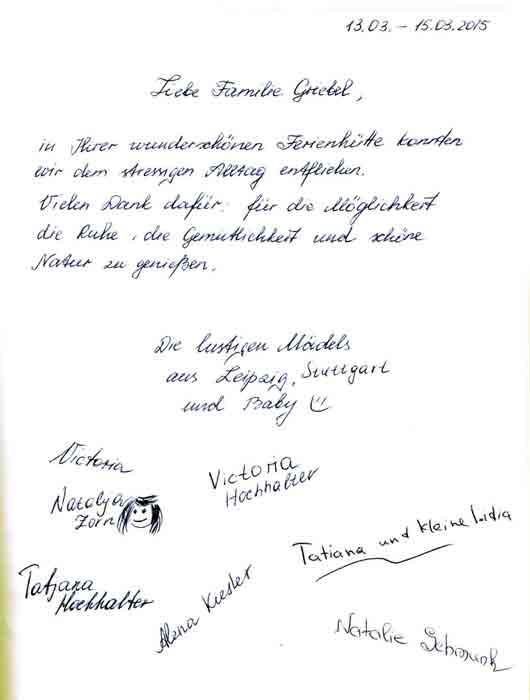 13.03. – 15.03.2015
Liebe Familie Griebel,
in Ihrer wunderschönen Ferienhütte konnten
wir dem stressigen Alltag entfliehen.
Vielen Dank dafür: für die Möglichkeit
die Ruhe, die Gemütlichkeit und schöne
Natur zu genießen.
Die lustigen Mädels
aus Leipzig, Stuttgart
und Baby
Victoria
Victoria
Hochhalter
Natalya
Zorn
Tatiana und kleine
Tatjana
Hochhalter
Alena
Natalie